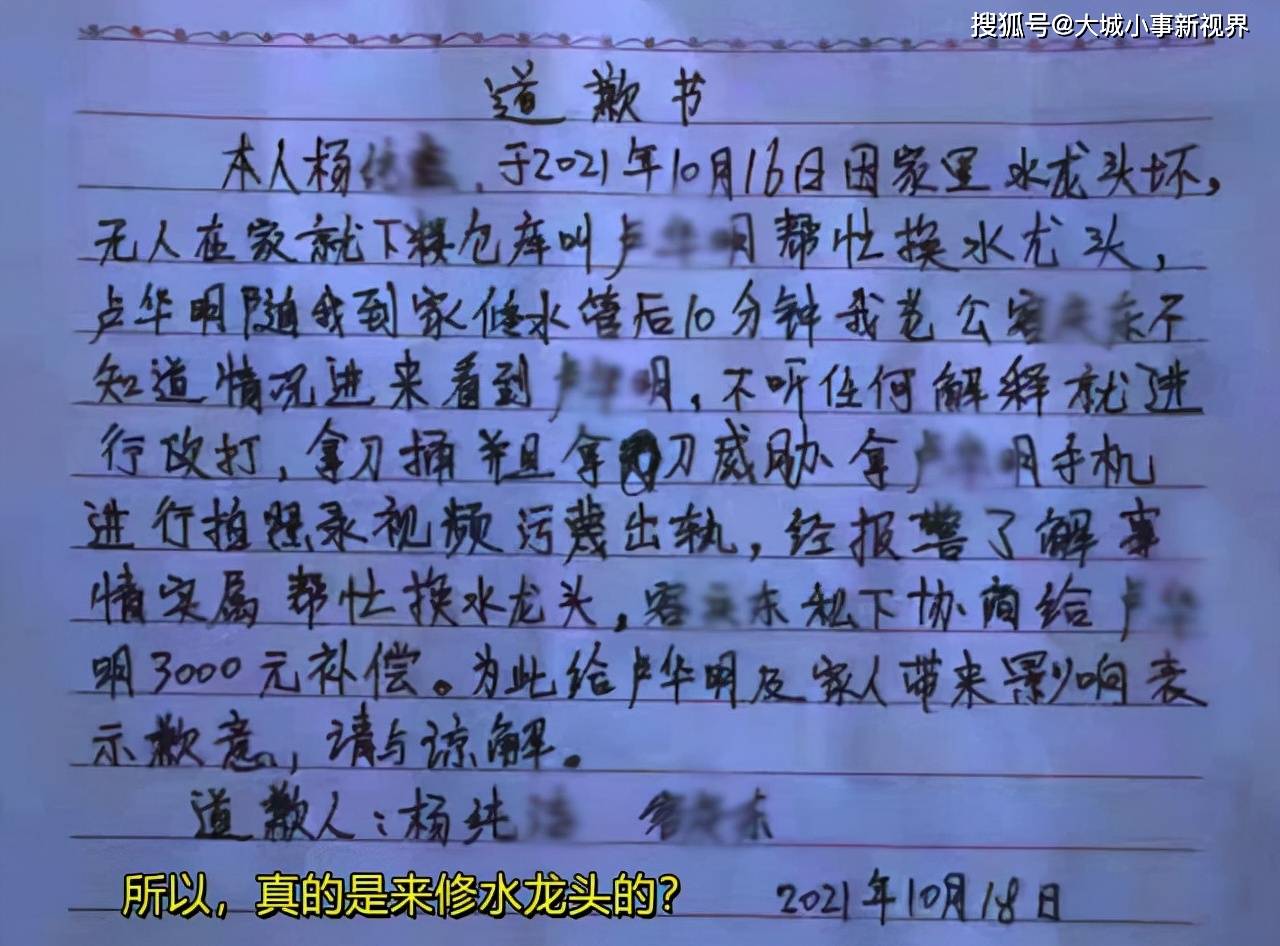 搜狐号@大城小事新视界
道歉书
本人杨 ，于2021年10月16日因家里水龙头坏，
无人在家就下楼仓库叫卢华明帮忙换水龙头，
卢华明随我到家修水管后10分钟我老公客 东不
知道情况进来看到卢华明，不听任何解释就进
行改打，拿刀捅并且拿刀威胁拿卢华明手机
进行拍照录视频污蔑出轨，经报警了解事
情实属帮忙换水龙头，客 东私下协商给卢华
明3000元补偿。为此给卢华明及家人带来影响表
示歉意，请与谅解。
道歉人：杨纯 客 东
所以，真的是来修水龙头的？
2021年10月18日